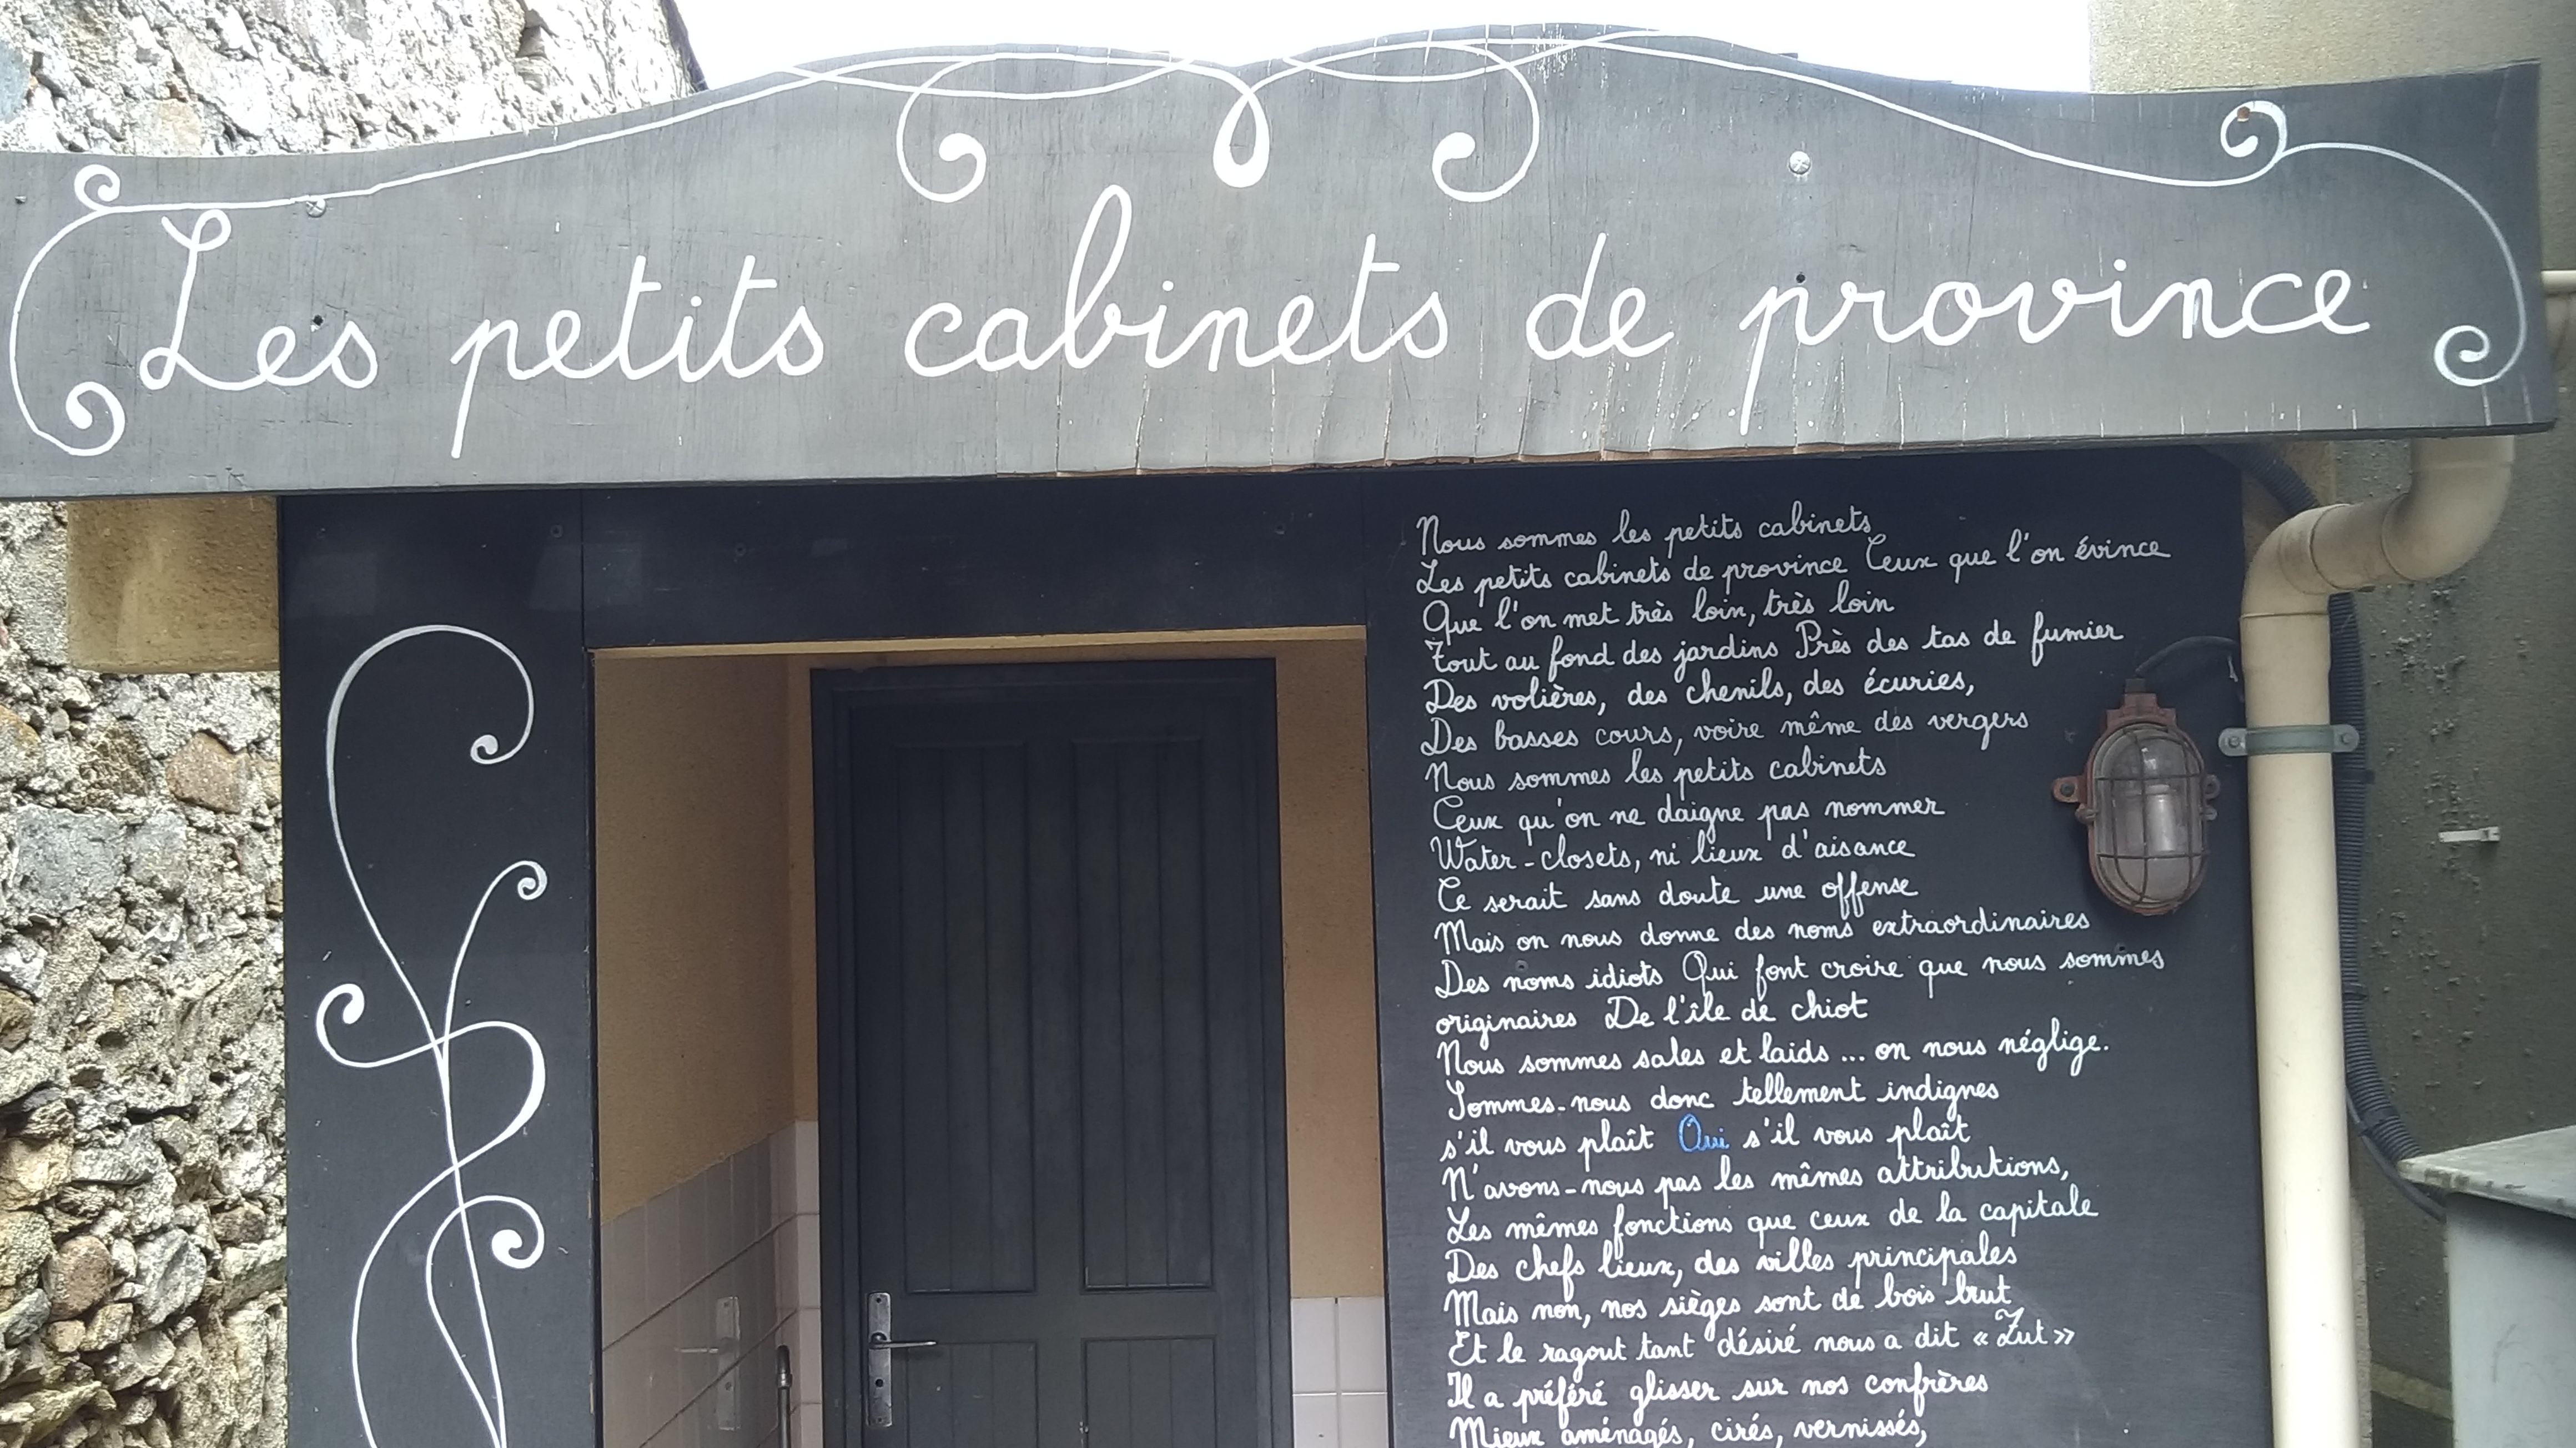 Les petits cabinets de province
Nous sommes les petits cabinets
Les petits cabinets de province Ceux que l'on évince
Que l'on met très loin, très loin
Tout au fond des jardins Près des tas de fumier
Des volières, des chenils, des écuries,
Des basses cours, voire même des vergers
Nous sommes les petits cabinets
Ceux qu'on ne daigne pas nommer
Water-closets, ni lieux d'aisance
Ce serait sans doute une offense
Mais on nous donne des noms extraordinaires
Des noms idiots Qui font croire que nous sommes
originaires De l'île de chiot
Nous sommes sales et laids ... on nous néglige.
Sommes-nous donc tellement indignes
s'il vous plaît Oui s'il vous plaît
N'avons-nous pas les mêmes attributions,
Les mêmes fonctions que ceux de la capitale
Des chefs lieux, des villes principales
Mais non, nos sièges sont de bois brut
Et le ragout tant désiré nous a dit « Zut »
Il a préféré glisser sur nos confrères
Mieux aménagés, cirés, vernissés,